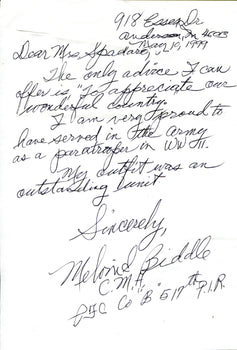 918 Essex Dr
Anderson, In 46013
May 10, 1999
Dear Mrs. Spadaro,
The only advice I can
offer is "To appreciate our
wonderful country.
I am very proud to
have served in the Army
as a paratrooper in WW II.
My outfit was an
outstanding unit
Sincerely,
Melvin E. Biddle
C.M.H.
PFC Co "B" 517th P.I.R.